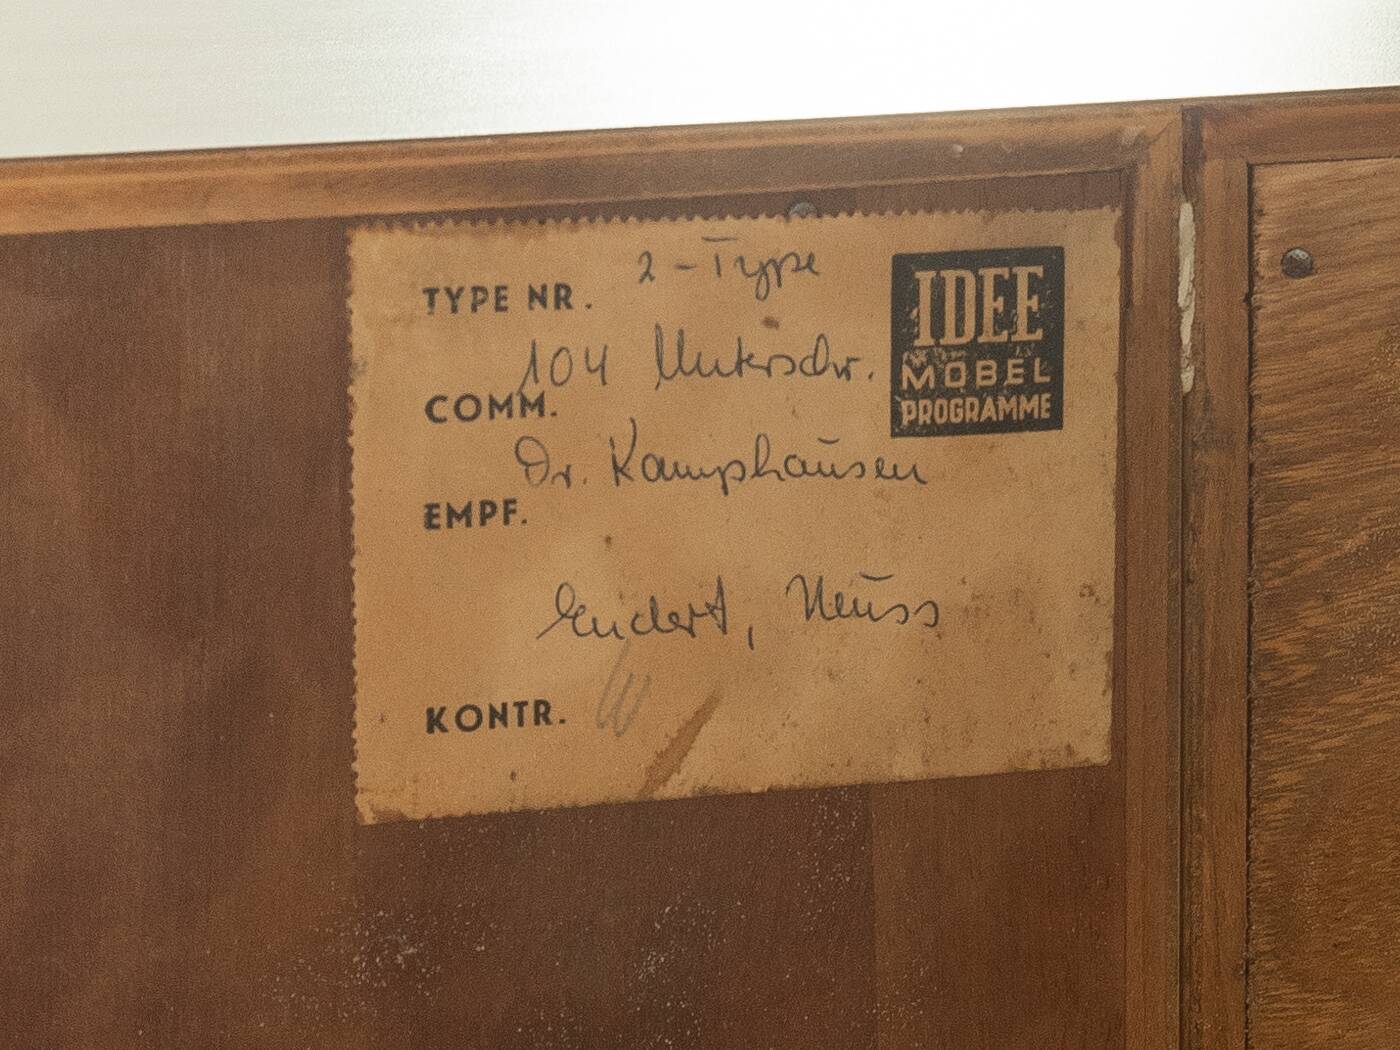 TYPE NR. 2-Type
104 Unterschr.
COMM.
Dr. Kamphausen
EMPF.
Endert, Neuss
KONTR.
IDEE
MÖBEL
PROGRAMME